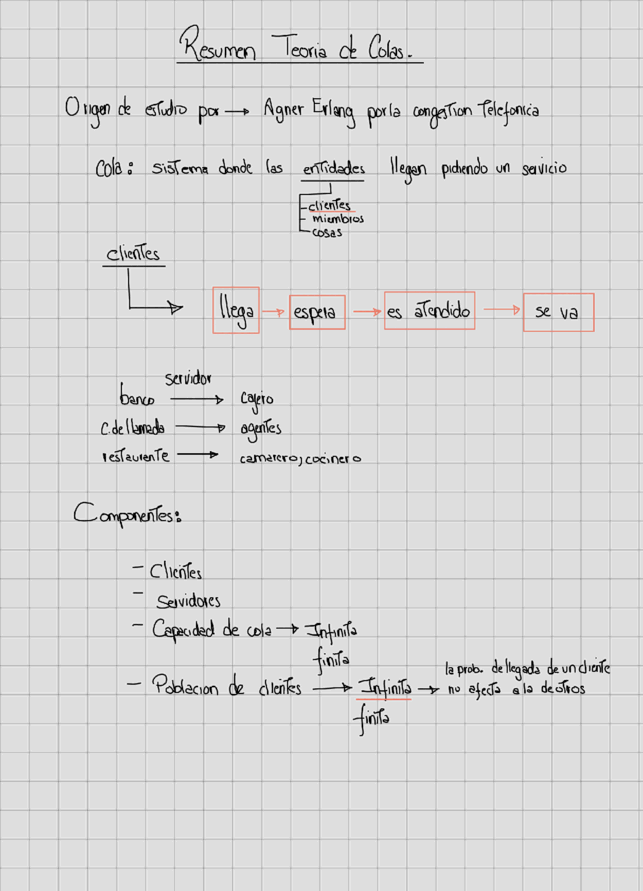 Resumen Teoria de Colas.
Origen de estudio por → Agner Erlang por la congestion Telefonica
Cola: sistema donde las entidades llegan pidiendo un servicio
- clientes
- miembros
- cosas
clientes
llega → espera → es atendido → se va
servidor
banco → cajero
c. de llamada → agentes
restaurante → camarero, cocinero
Componentes:
- Clientes
- Servidores
- Capacidad de cola → Infinita
finita
la prob. de llegada de un cliente
- Poblacion de clientes → Infinita → no afecta a la de otros
finita